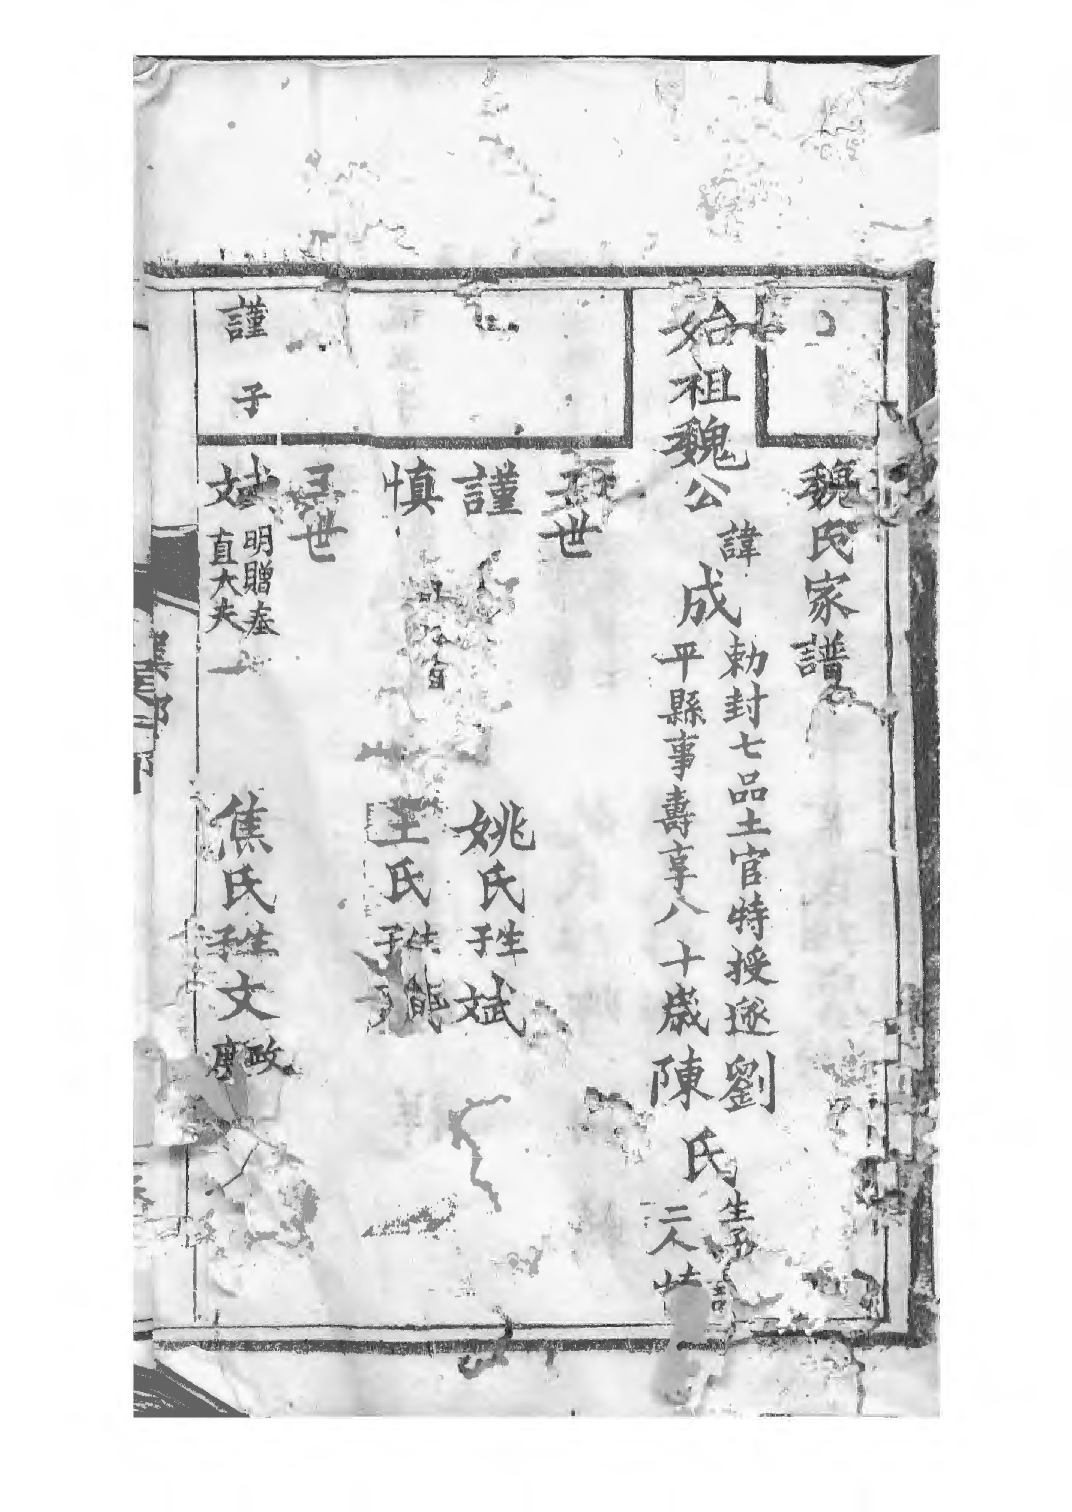 魏氏家譜
始祖魏公諱成
勅封七品土官特授遂
平縣事壽享八十歲
劉
陳
氏
生子
二人
二世
謹 姚氏生子斌
慎 王氏生子
三世
謹子
斌
明贈奉
直大夫
焦氏生子文
政